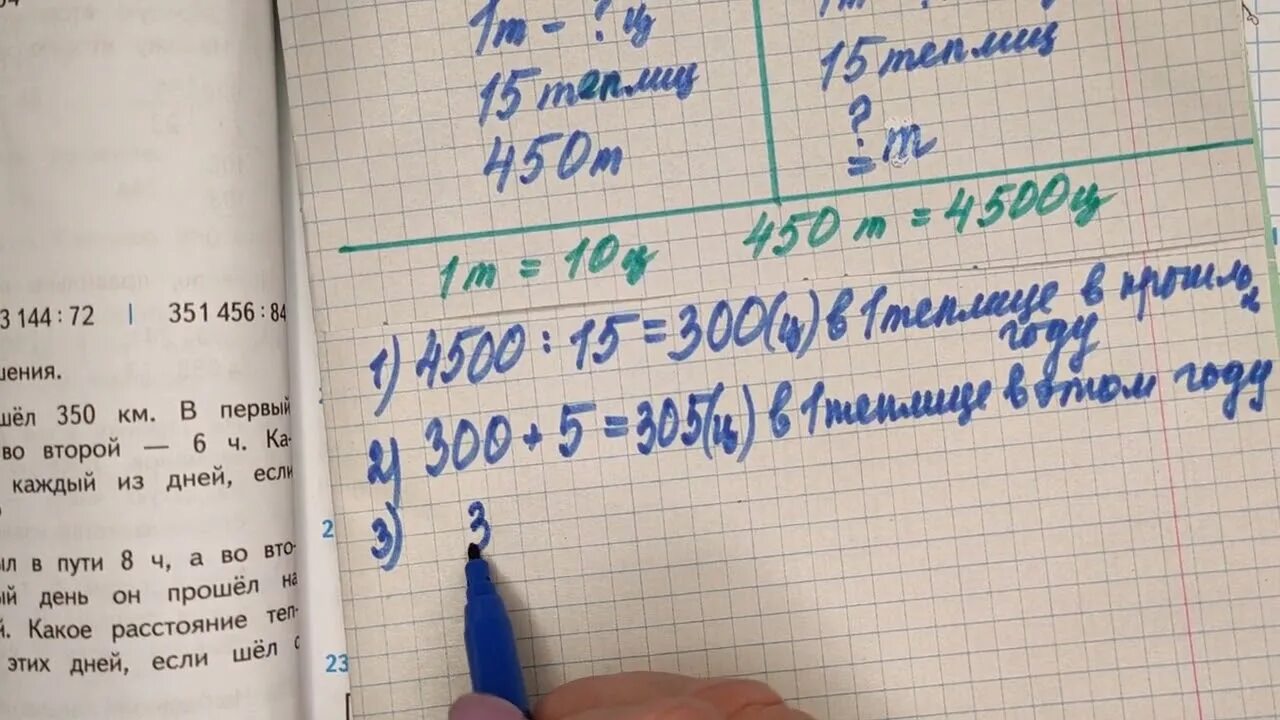 1т - ? ц
15 теплиц
15 теплиц
450т
?
= т
1т = 10ц
450 т = 4500ц
1) 4500 : 15 = 300(ц) в 1 теплице в прошло
году
2) 300 + 5 = 305(ц) в 1 теплице в этом году
3) 3
3 144 : 72 | 351 456 : 84
шения.
шёл 350 км. В первый
во второй — 6 ч. Ка-
каждый из дней, если
ыл в пути 8 ч, а во вто-
ый день он прошёл на
й. Какое расстояние теп-
этих дней, если шёл с
2
23